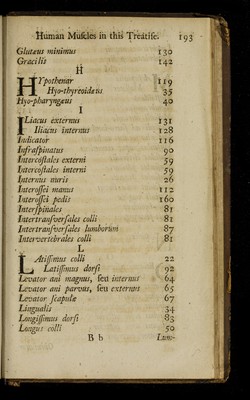 Human Muſcles in this Treatiſe. 193
Glutæus minimus 130
Gracilis 142
H
HYpothenar 119
Hyo-thyreoidæus 35
Hyo-pharyngæus 40
I
ILiacus externus 131
Iliacus internus 128
Indicator 116
Infraſpinatus 90
Intercoſtales externi 59
Intercoſtales interni 59
Internus auris 26
Interoſſei manus 112
Interoſſei pedis 160
Interſpinales 81
Intertranſverſales colli 81
Intertranſverſales lumborum 87
Intervertebrales colli 81
L
LAtiſſimus colli 22
Latiſſimus dorſi 92
Levator ani magnus, ſeu internus 64
Levator ani parvus, ſeu externus 65
Levator ſcapulæ 67
Lingualis 34
Longiſſimus dorſi 83
Longus colli 50
B b Lum-